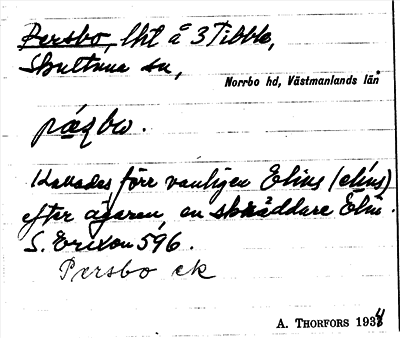 Persbo, lht å 3 Tibble,
Skultuna sn,
Norrbo hd, Västmanlands län
pæ̨ṣbo.
Kallades förr vanligen Elins (elíns)
efter ägaren, en skräddare Elin.
S. Erixon 596.
Persbo ek
A. THORFORS 1934